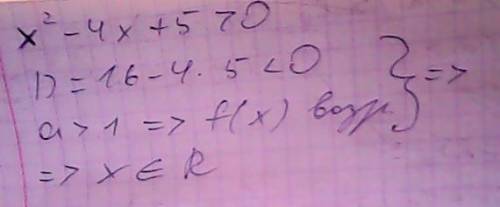 x² - 4x + 5 > 0
D = 16 - 4 · 5 < 0
a > 1 => f(x) возр. } =>
=> x ∈ R